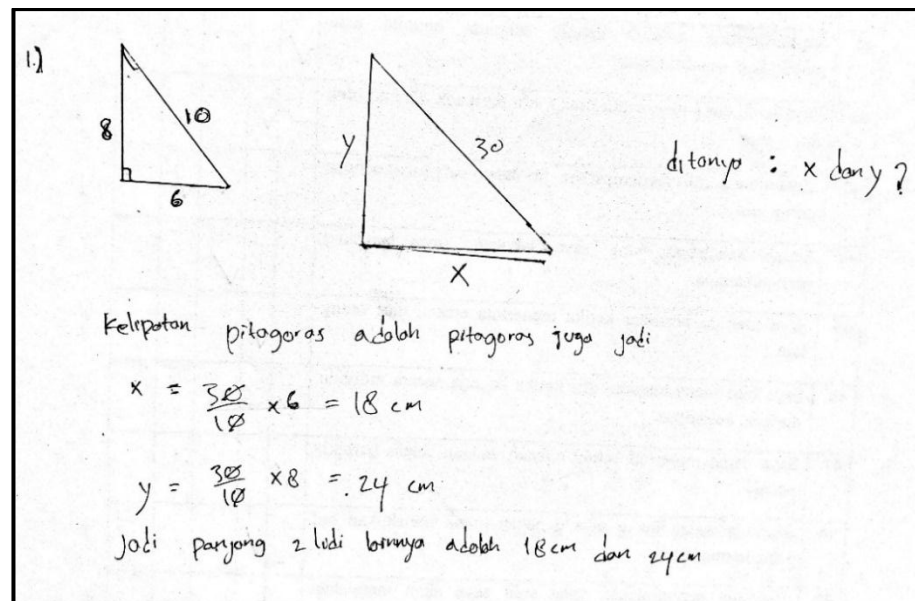 1.)
8
10
6
y
30
x
ditanya : x dan y ?
Kelipatan pitagoras adalah pitagoras juga jadi
x = 30/10 x 6 = 18 cm
y = 30/10 x 8 = 24 cm
Jadi panjang 2 lidi lainnya adalah 18 cm dan 24 cm